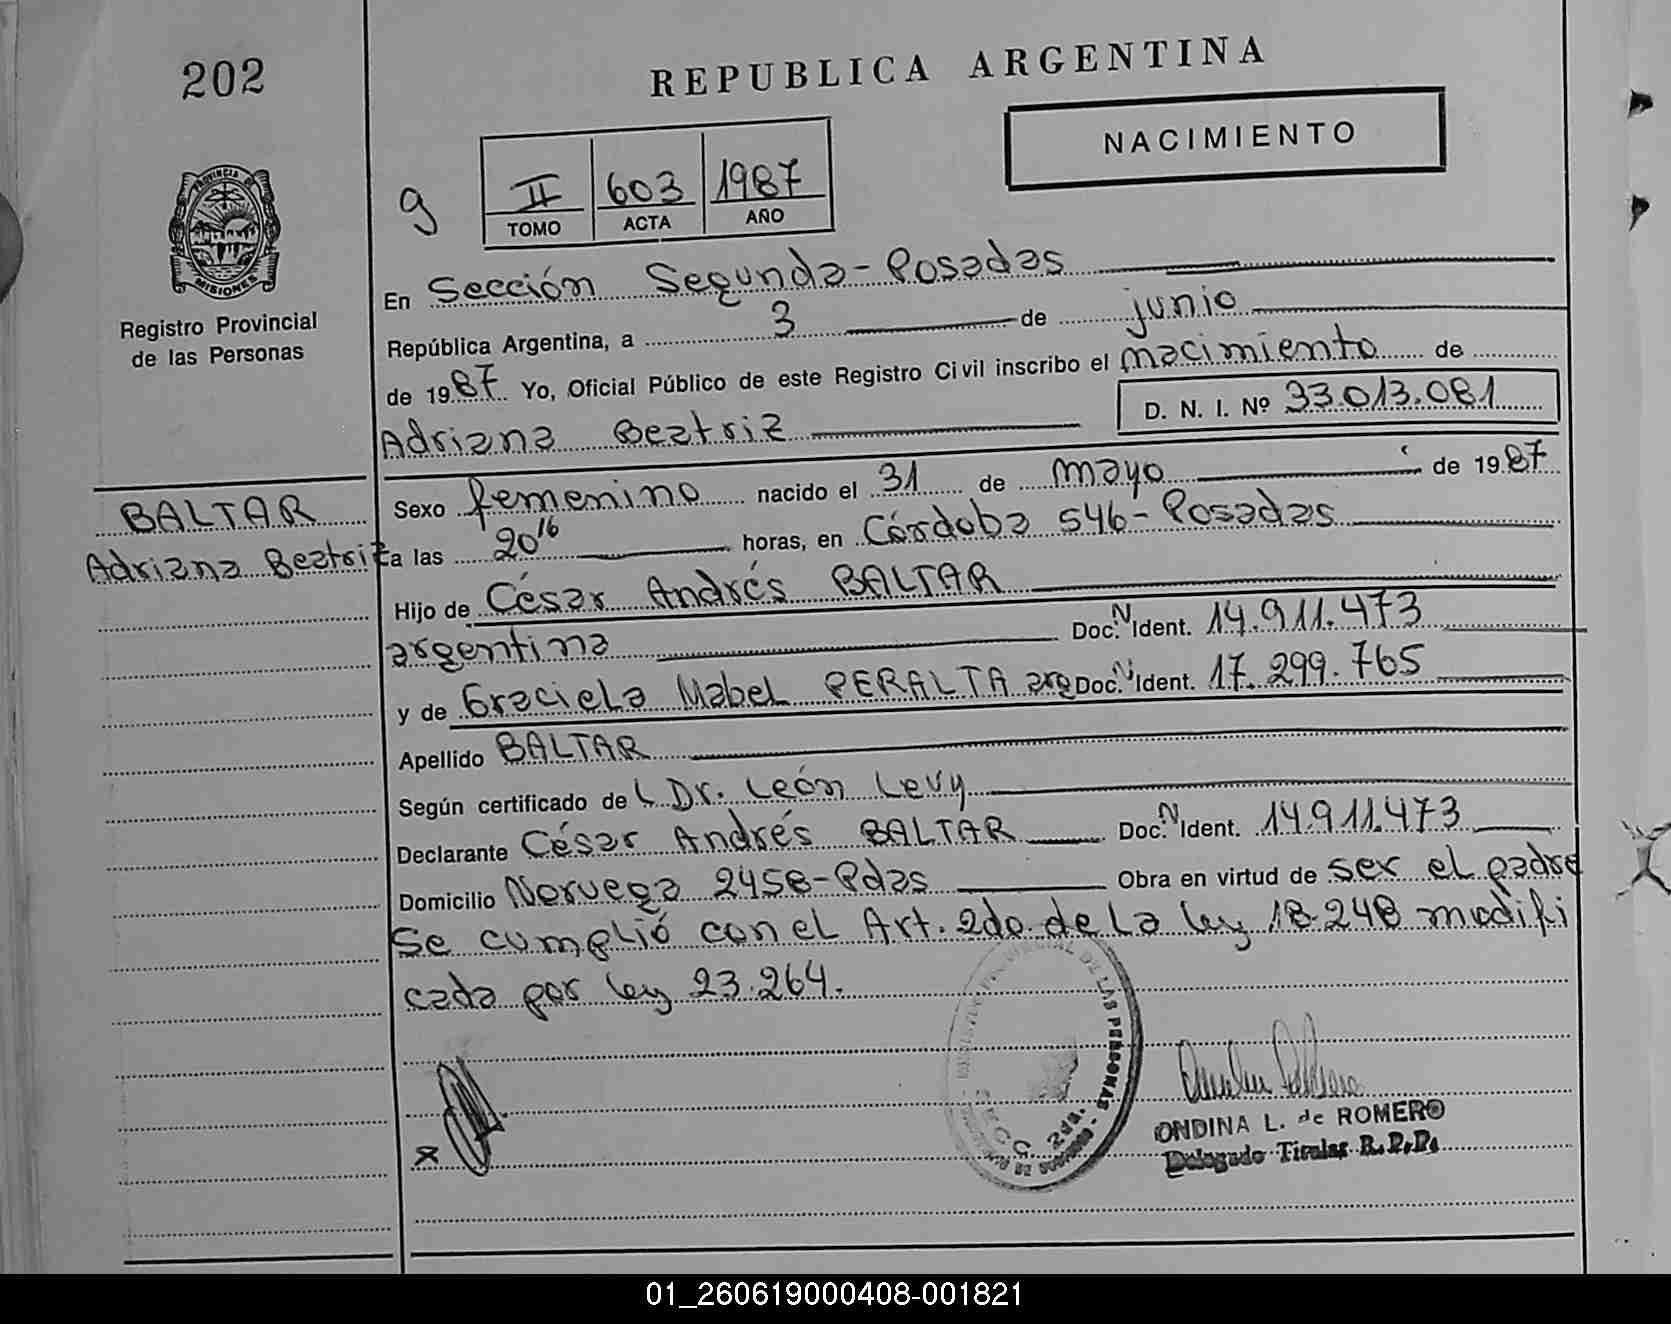 202
REPUBLICA ARGENTINA
NACIMIENTO
9
II 603 1987
TOMO ACTA AÑO
PROVINCIA DE
MISIONES
Registro Provincial
de las Personas
En Sección Segunda-Posadas
República Argentina, a 3 de junio
de 1987 Yo, Oficial Público de este Registro Civil inscribo el nacimiento de
Adriana Beatriz D. N. I. Nº 33.013.081
Sexo femenino nacido el 31 de mayo de 1987
BALTAR
Adriana Beatriz
a las 20 16 horas, en Córdoba 546-Posadas
Hijo de César Andrés BALTAR
argentina Doc. N Ident. 14.911.473
y de Graciela Mabel PERALTA arg Doc. N Ident. 17.299.765
Apellido BALTAR
Según certificado de L Dr. León Levy
Declarante César Andrés BALTAR Doc. N Ident. 14.911.473
Domicilio Noruega 2458-Pdas Obra en virtud de ser el padre
Se cumplió con el Art. 2do. de la ley 18.248 modifi
cada por ley 23.264.
DE LAS PERSONAS
ONDINA L. de ROMERO
Delegado Titular R.P.P.
01_260619000408-001821